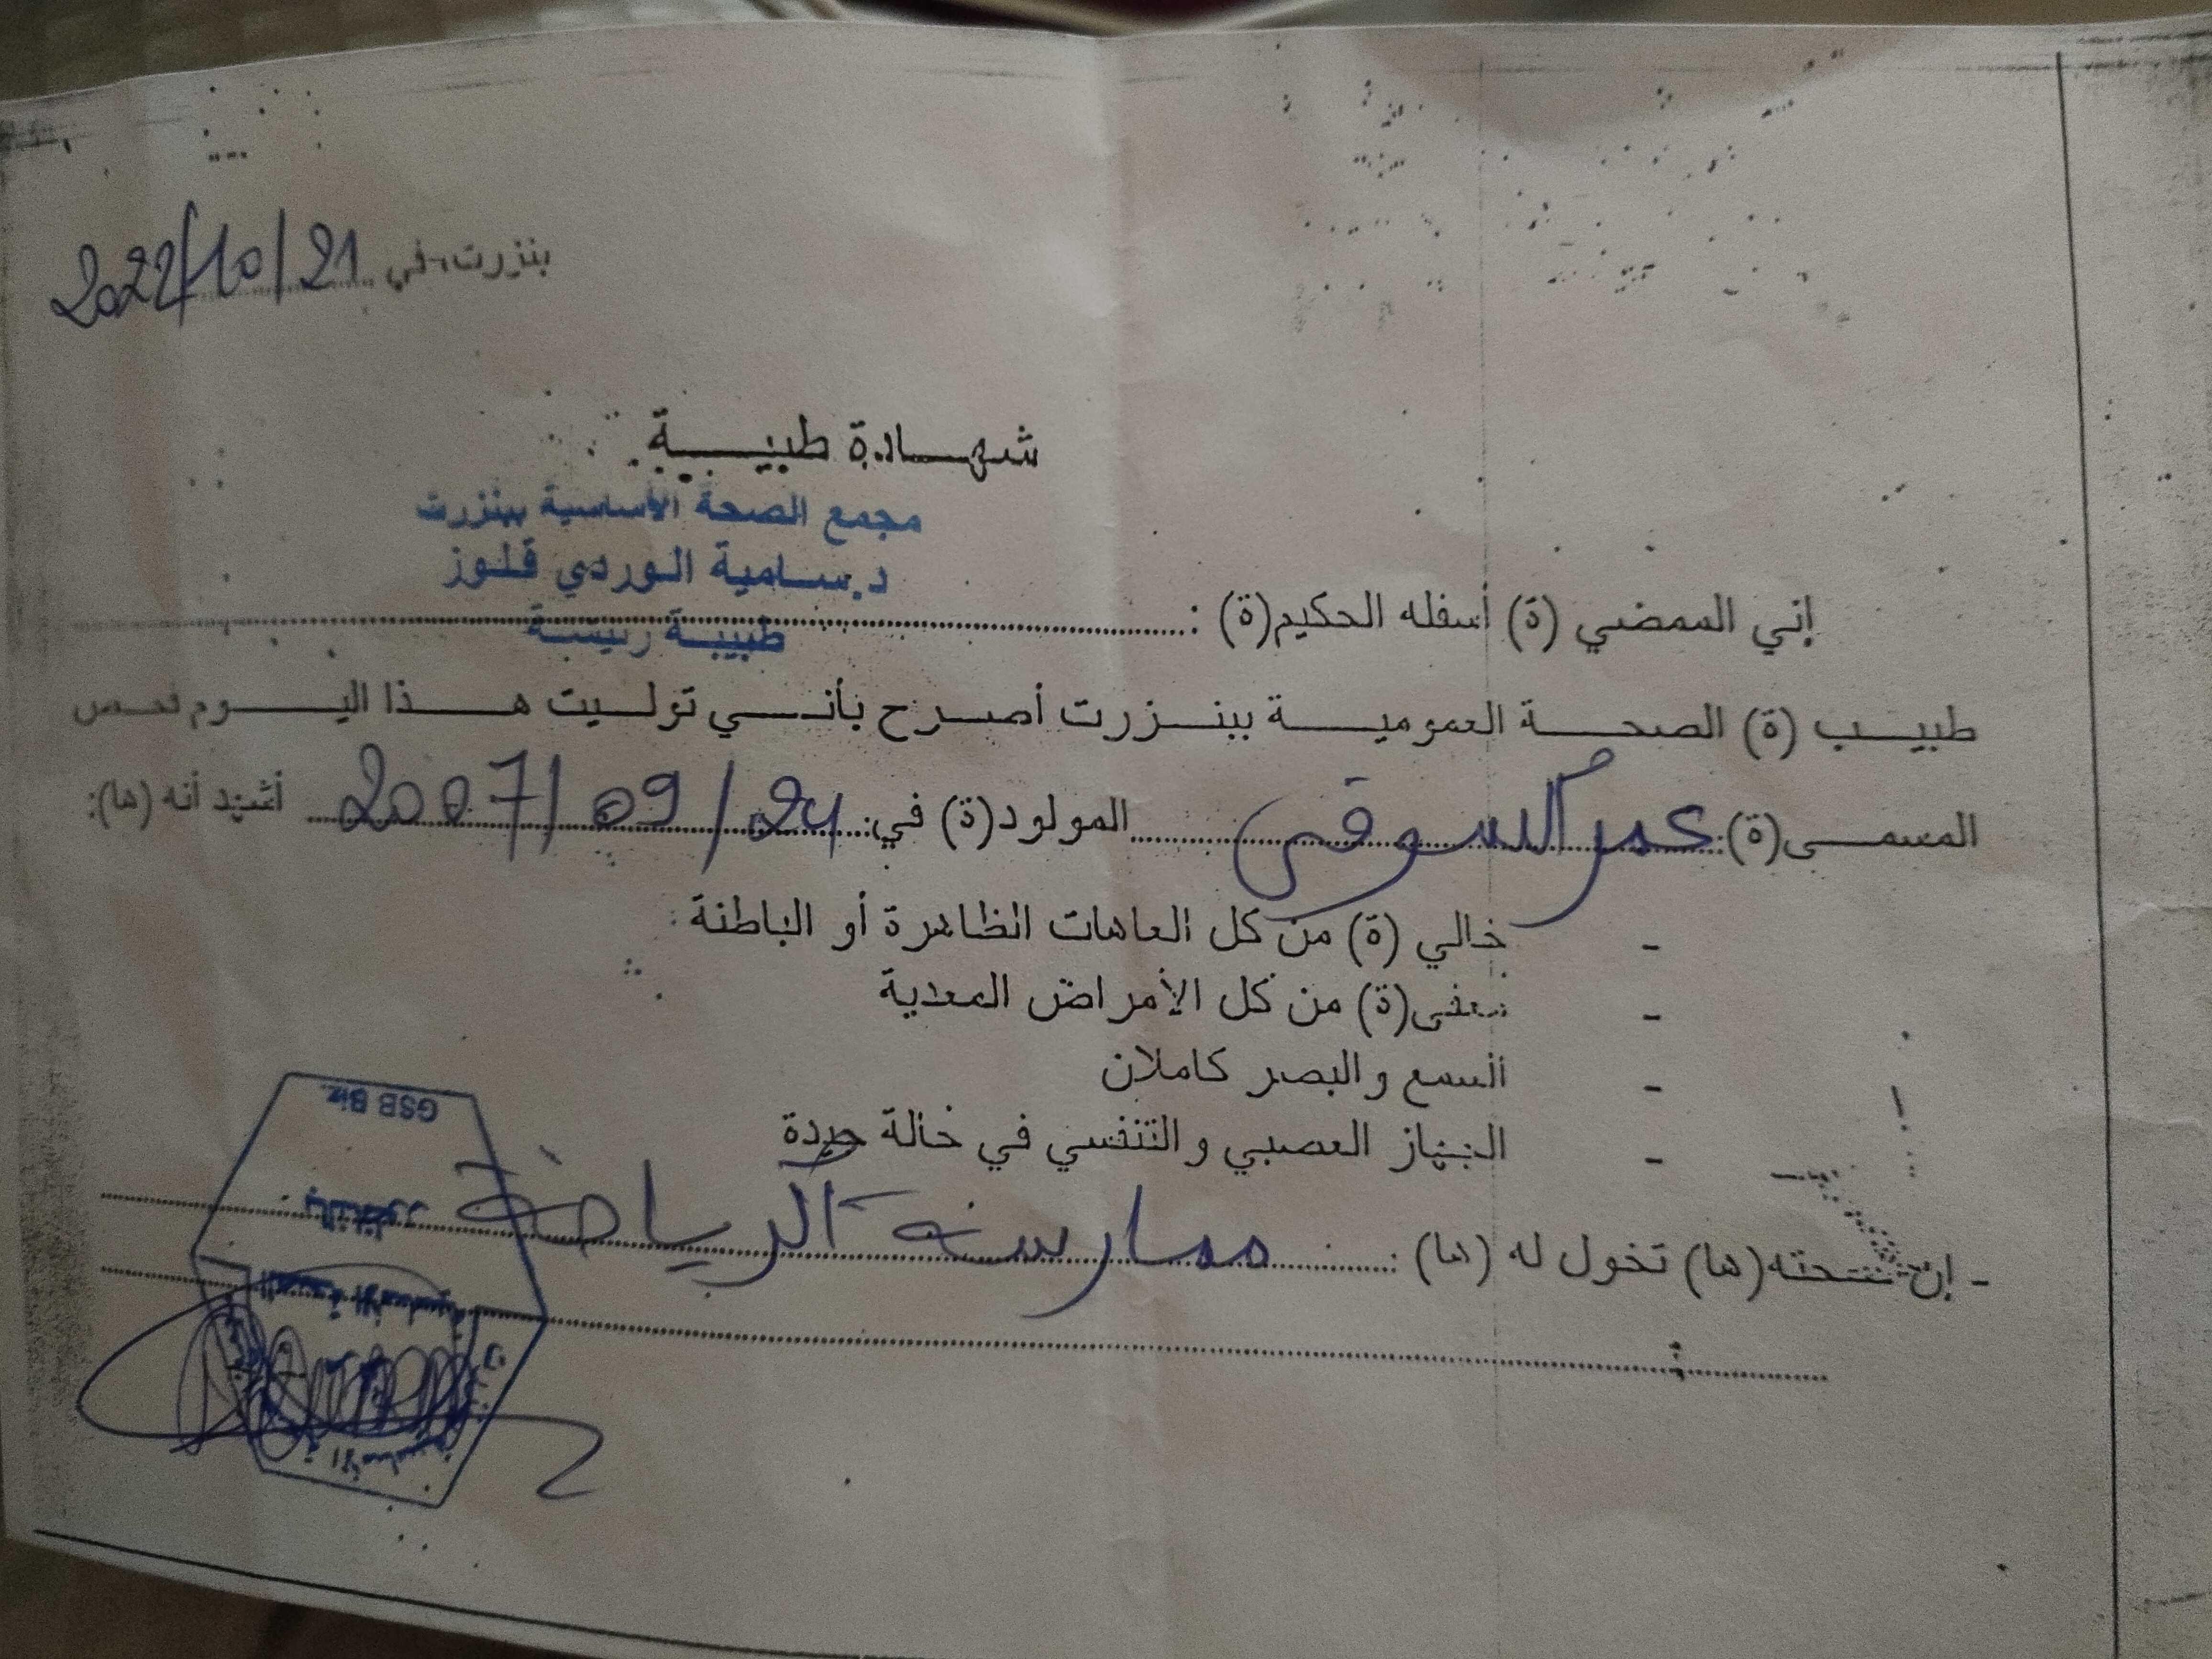 بنزرت في 2022/10/21
شهادة طبيبة
مجمع الصحة الأساسية ببنزرت
د.سامية الوردي قلوز
طبيبة رئيسة
إني الممضي (ة) أسفله الحكيم(ة) :
طبيب (ة) الصحة العمومية ببنزرت أصرح بأنني توليت هذا اليوم فحص
المسمى(ة): عمر السوقي المولود(ة) في: 2007/09/24 أشهد أنه (ها):
- خالي (ة) من كل العاهات الظاهرة أو الباطنة
- معفى(ة) من كل الأمراض المعدية
- السمع والبصر كاملان
- الجهاز العصبي والتنفسي في حالة جيدة
- إن صحته(ها) تخول له (ها) : ممارسة الرياضة
GSB Biz.